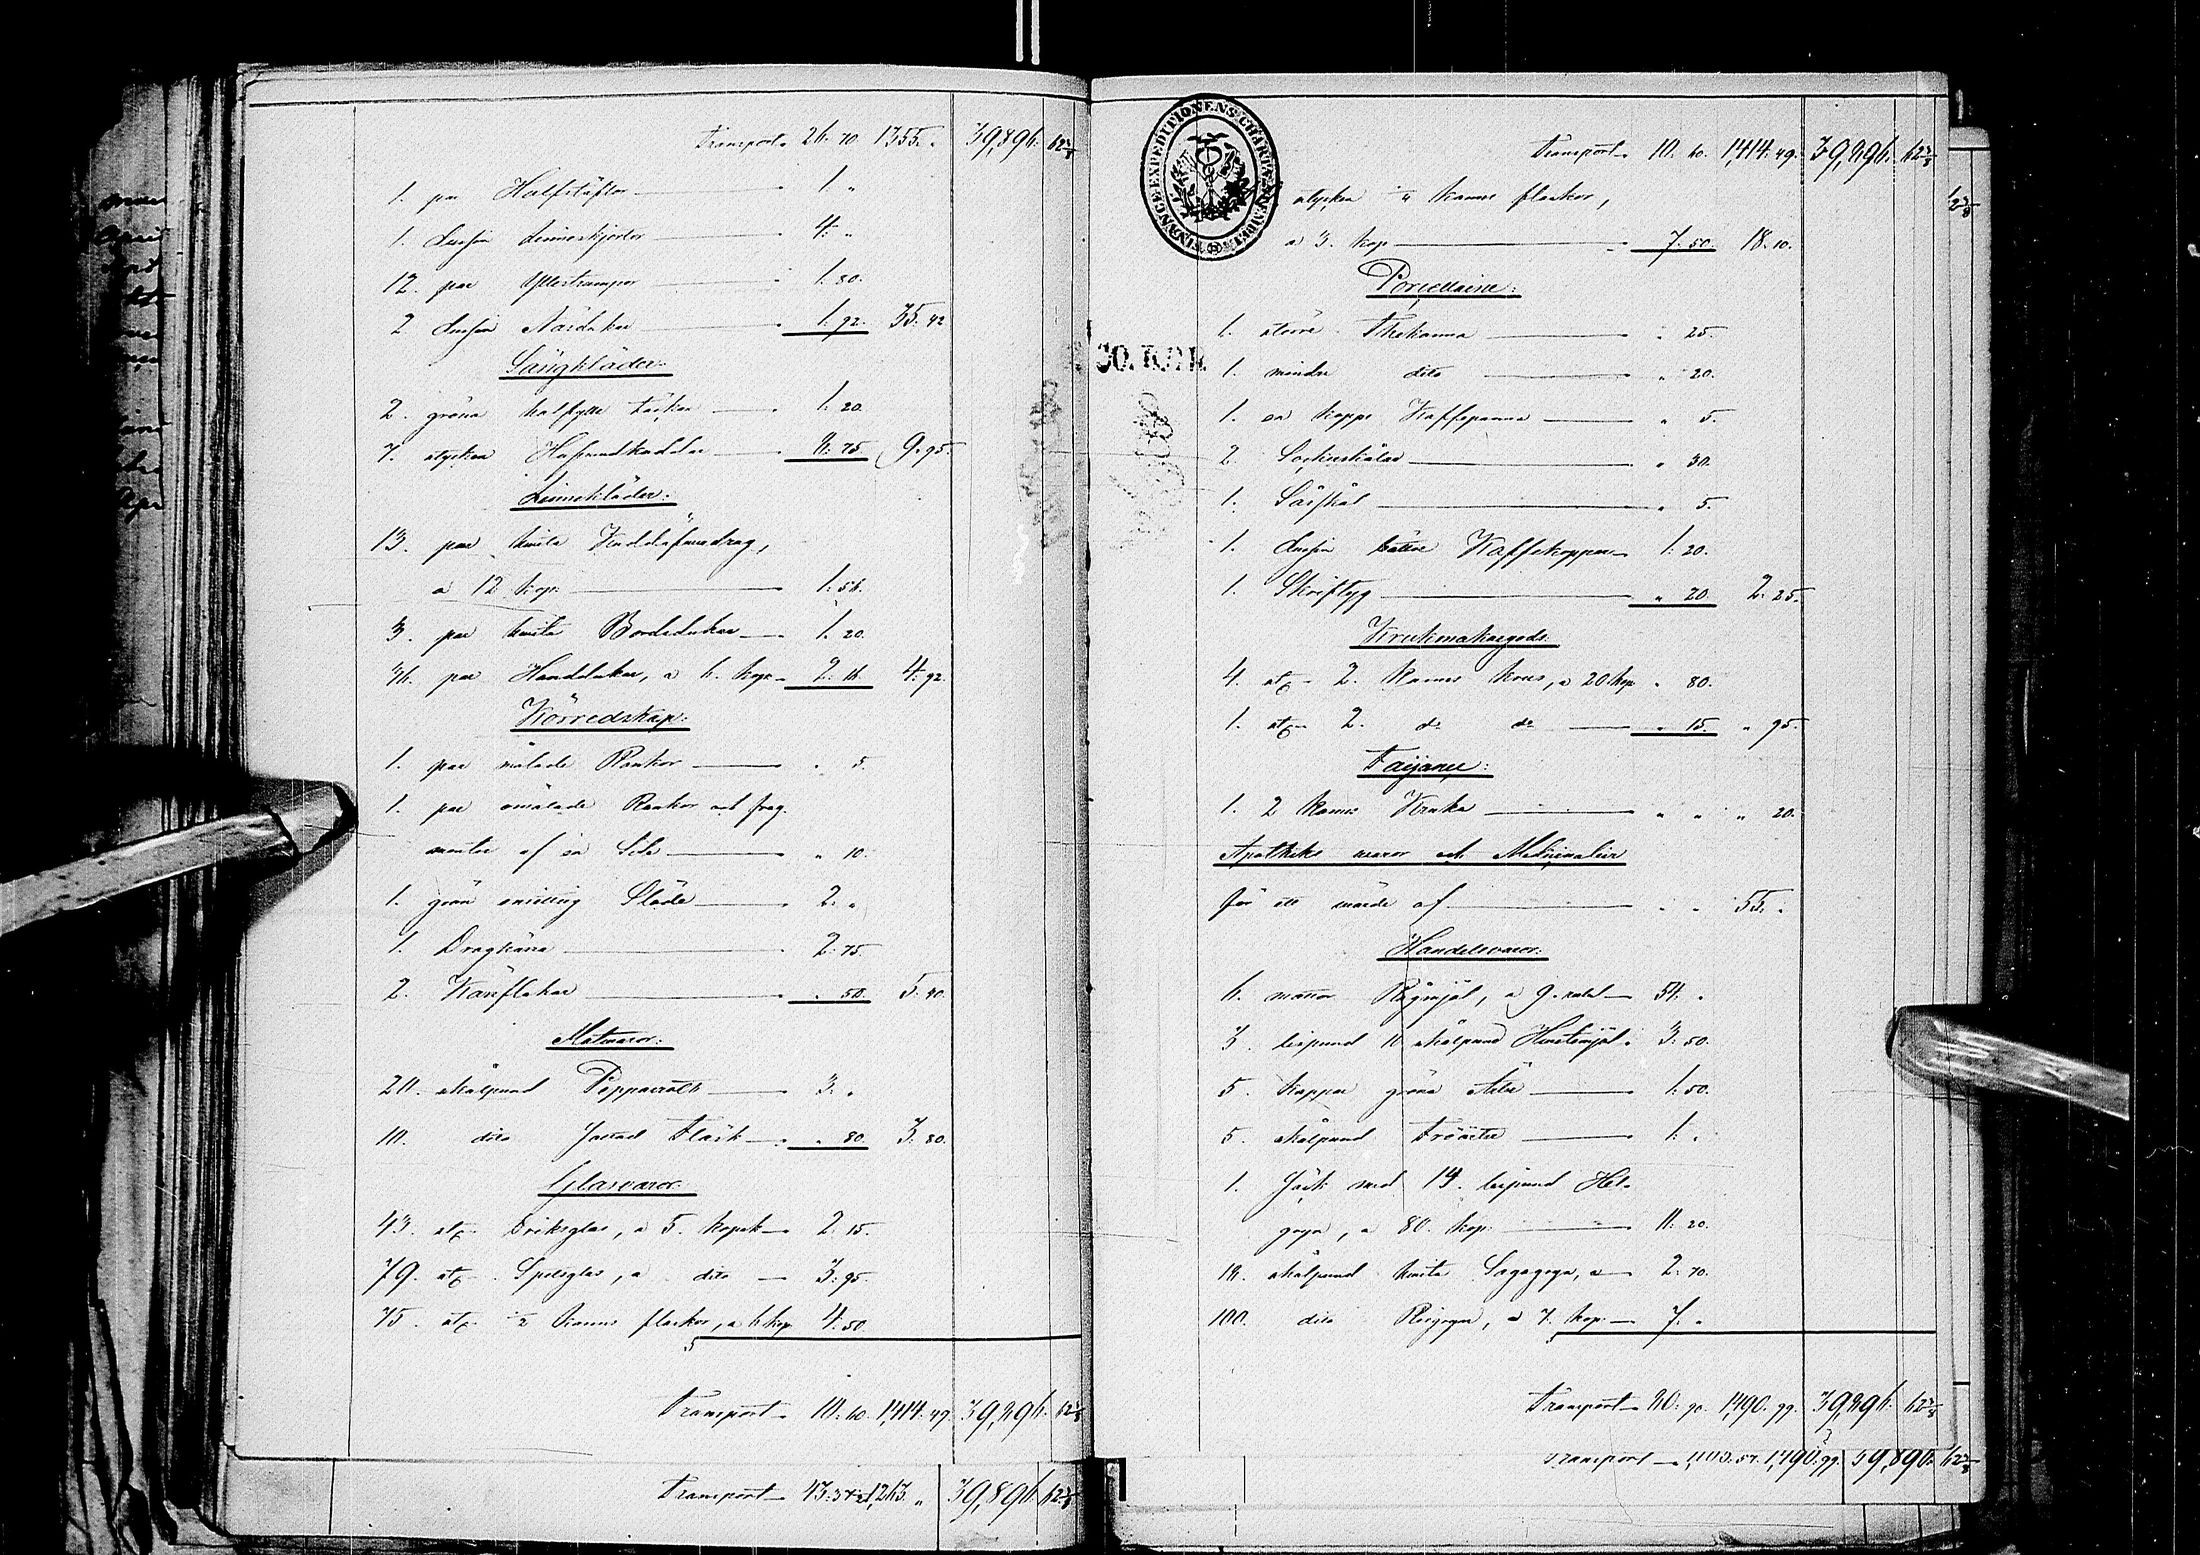 Transport 26. 70. 1355. " 39,896. 62 2/8
1. par Halfstöflor 1. "
1. dussin Linneskjortor 4. "
12. par Yllestrumpor 1. 80.
2 dussin Näsdukar 1. 92. 35. 42
Sängkläder:
2. gröna halfylle täcken 1. 20.
7. stycken Hufvudkuddar 8. 75 9. 95.
Linnekläder:
13. par hvita Kuddöfverdrag,
a 12 kop. 1. 56.
3. par hvita Bordsdukar 1. 20.
36. par Handdukar, a 6. kop. 2. 16 4. 92.
Körredskap:
1. par målade Rankor " 5.
1. par omålade Rankor och frag-
menter af en Sele " 10.
1. grön ensittsig Släde 2. "
1. Dragkärra 2. 75.
2. Kärrflakar " 50. 5. 40.
Matvaror:
20. skålpund Pepparrott 3. "
10. dito Saltad Fläsk " 80. 3. 80.
Glasvaror:
43. st. Driksglas, a 5. kopek 2. 15.
79. st. Spetsglas, a dito 3. 95.
75. st. ½ kanns flaskor, a 6 kop. 4. 50.
Transport 10. 60. 1,414. 49. 39,896. 62 2/8
Transport 1,263. " 39,896. 62 2/8
FINANCE-EXPEDITIONENS CHARTÆ
Transport 10. 60. 1,414. 49. 39,896. 62 2/8
stycken ¼ kanns flaskor,
a 3. kop 7. 50. 18. 10.
Porcellaine:
1. större Thekanna " 25.
30. KOP.
1. mindre dito " 20.
1. en kopps Kaffepanna " 5.
2. Sockerskålar " 30.
1. Såsskål " 5.
1. dussin bättre Kaffekoppar 1. 20.
1. Skriftyg " 20 2. 25.
Krukmakaregods:
4. st. 2. kanns krus, a 20 kop " 80.
1. st. 2. do do " 15. " 95.
Faijance:
1. 2 kanns Kruka " " " 20.
Apotheks varor och Medicinalier
för ett värde af " " 55. "
Handelsvaror:
6. mattor Rågmjöl, a 9. rubel 54. "
3. leispund 10 skålpund Hvetemjöl 3. 50.
5. kappar gröna Ärter 1. 50.
5. skålpund Fröärter 1. "
1. Säck med 14. leispund Hel-
gryn, a 80. kop. 11. 20.
18. skålpund hvita Sagogryn, a 2. 70.
100. dito Risgryn, a 7. kop. 7. "
Transport 80. 90. 1,490. 99. 39,896. 62 2/8
Transport 1,490. 99. 39,896. 62 2/8